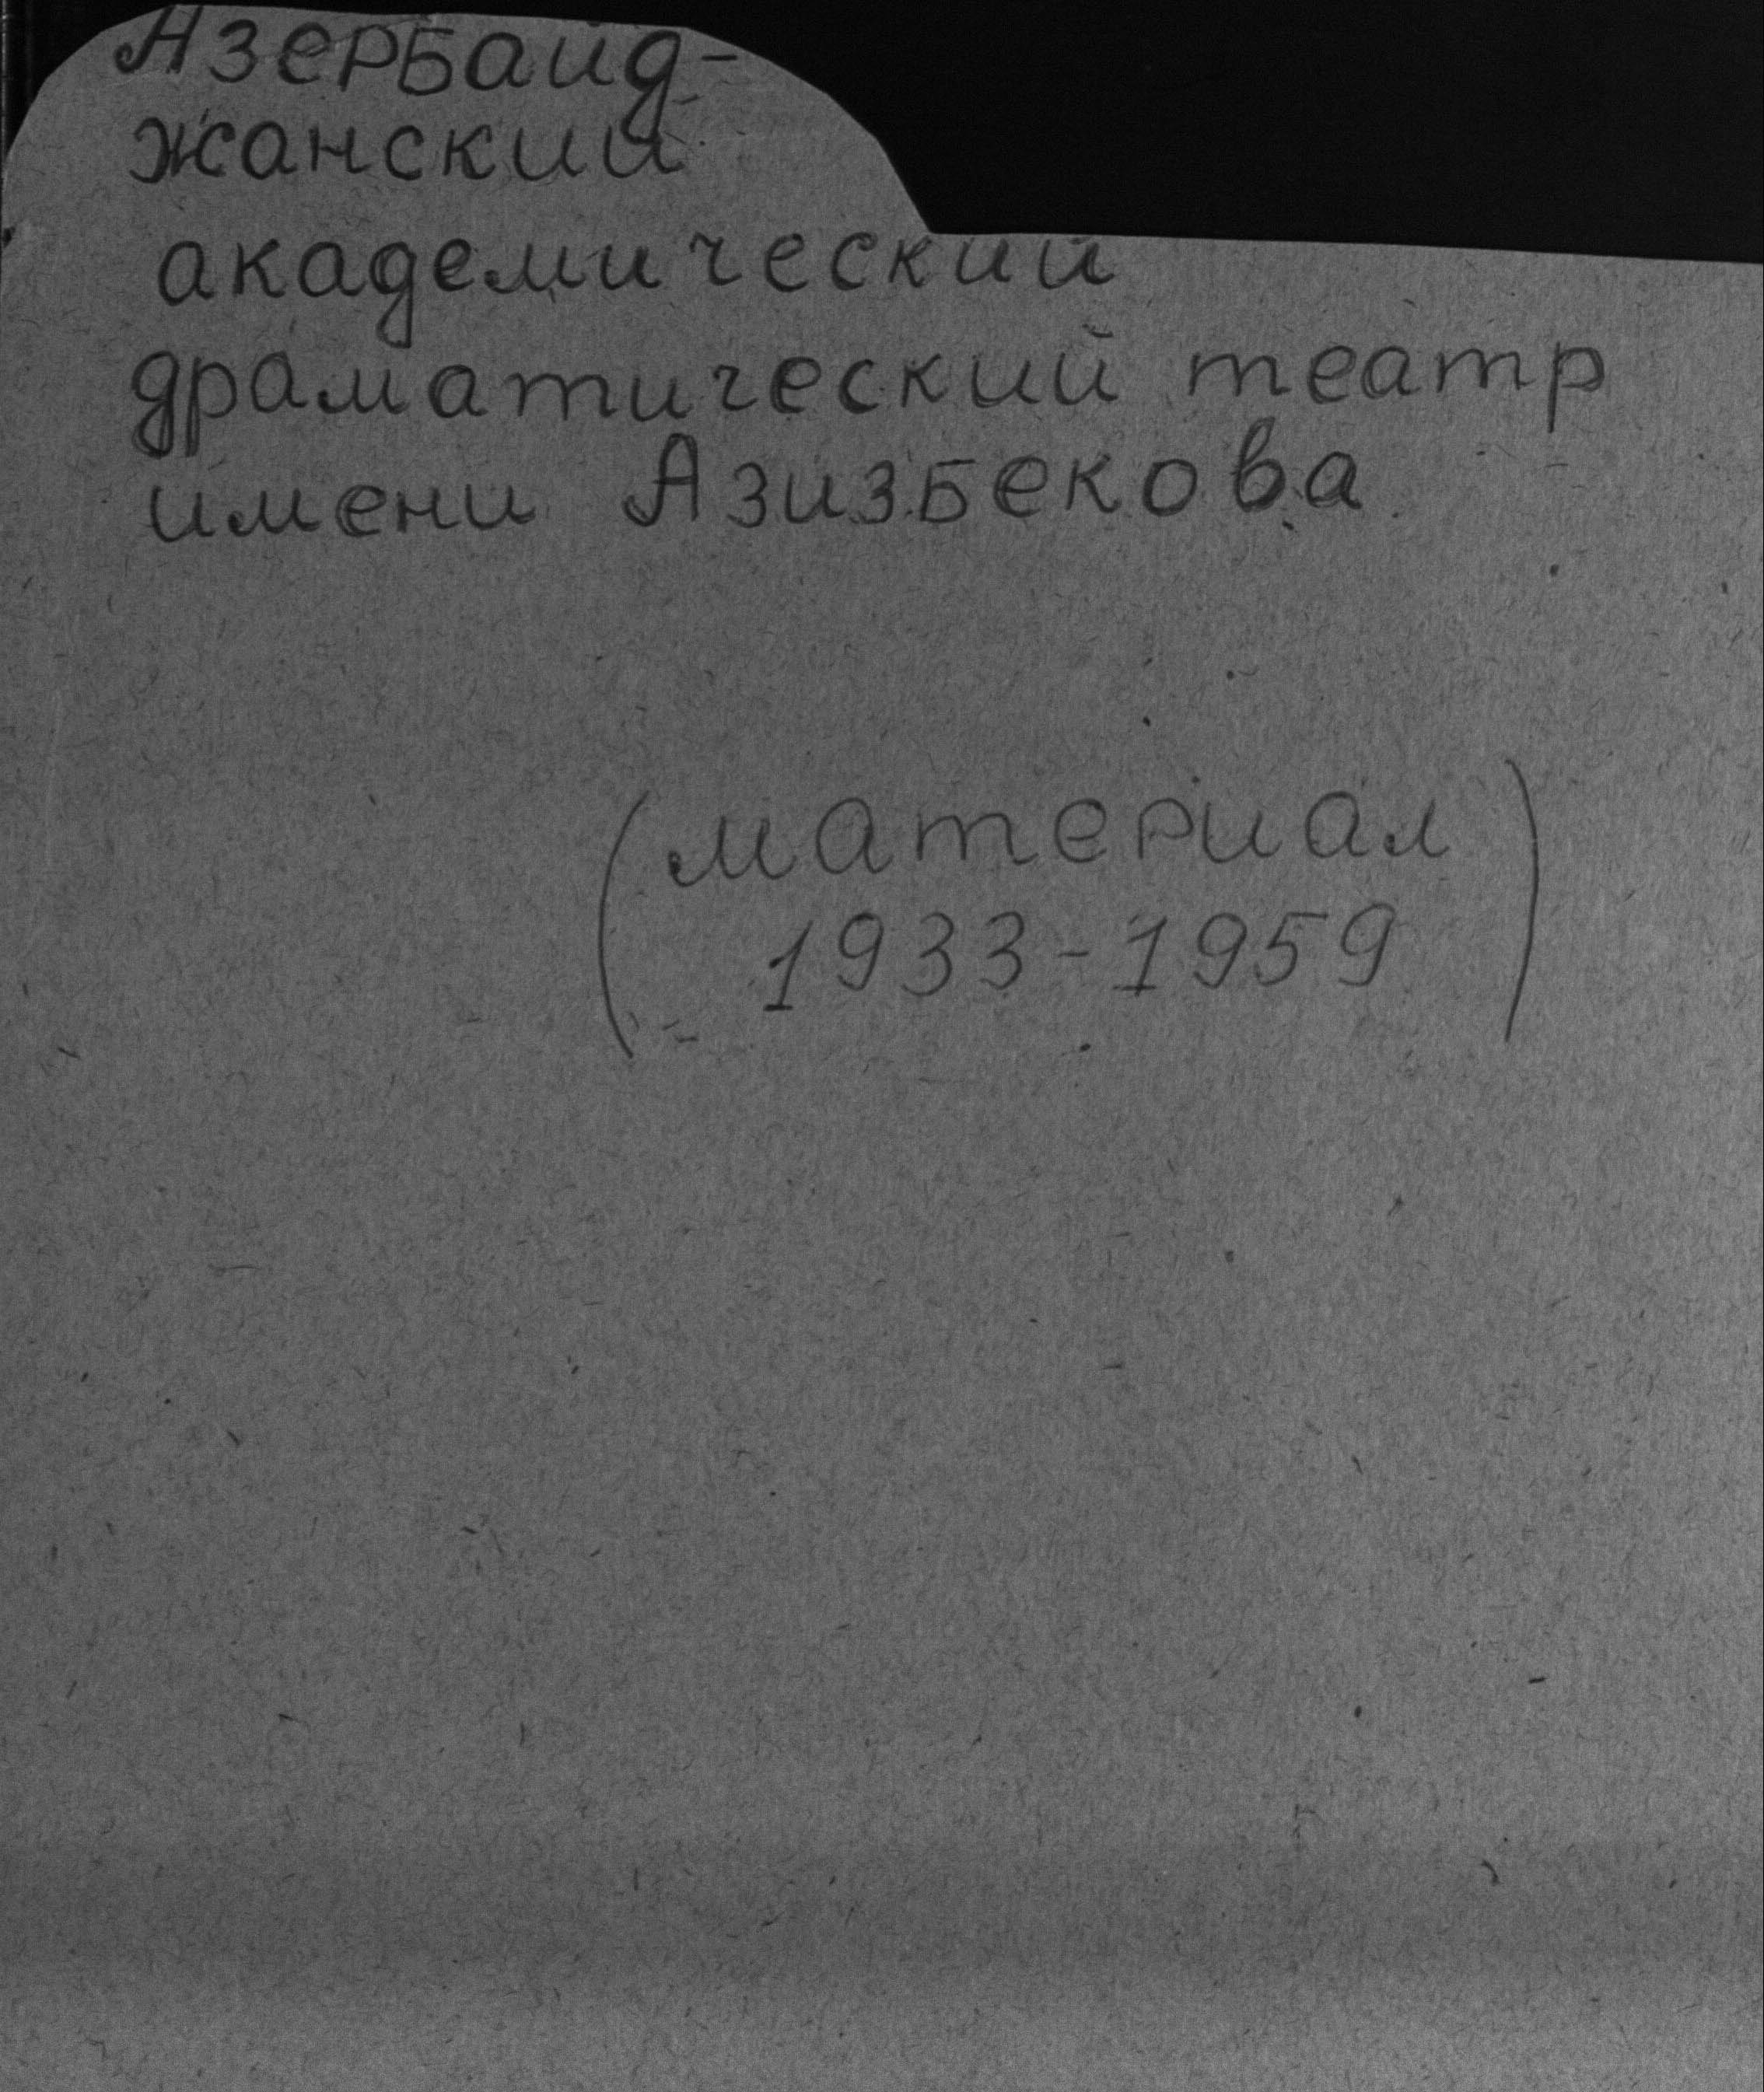 Азербайд-
жанский
академический
драматический театр
имени Азизбекова
(материал
1933-1959)